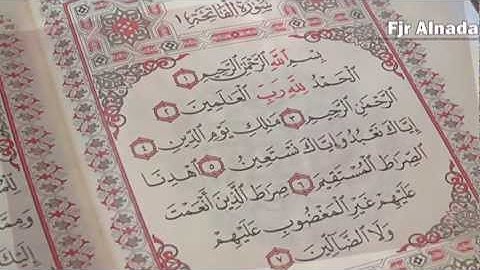 Fjr Alnada
سُورَةُ الفَاتِحَةِ ١
بِسْمِ اللَّهِ الرَّحْمَٰنِ الرَّحِيمِ ١
الْحَمْدُ لِلَّهِ رَبِّ الْعَالَمِينَ ٢
الرَّحْمَٰنِ الرَّحِيمِ ٣ مَالِكِ يَوْمِ الدِّينِ ٤
إِيَّاكَ نَعْبُدُ وَإِيَّاكَ نَسْتَعِينُ ٥ اهْدِنَا
الصِّرَاطَ الْمُسْتَقِيمَ ٦ صِرَاطَ الَّذِينَ أَنْعَمْتَ
عَلَيْهِمْ غَيْرِ الْمَغْضُوبِ عَلَيْهِمْ
وَلَا الضَّالِّينَ ٧